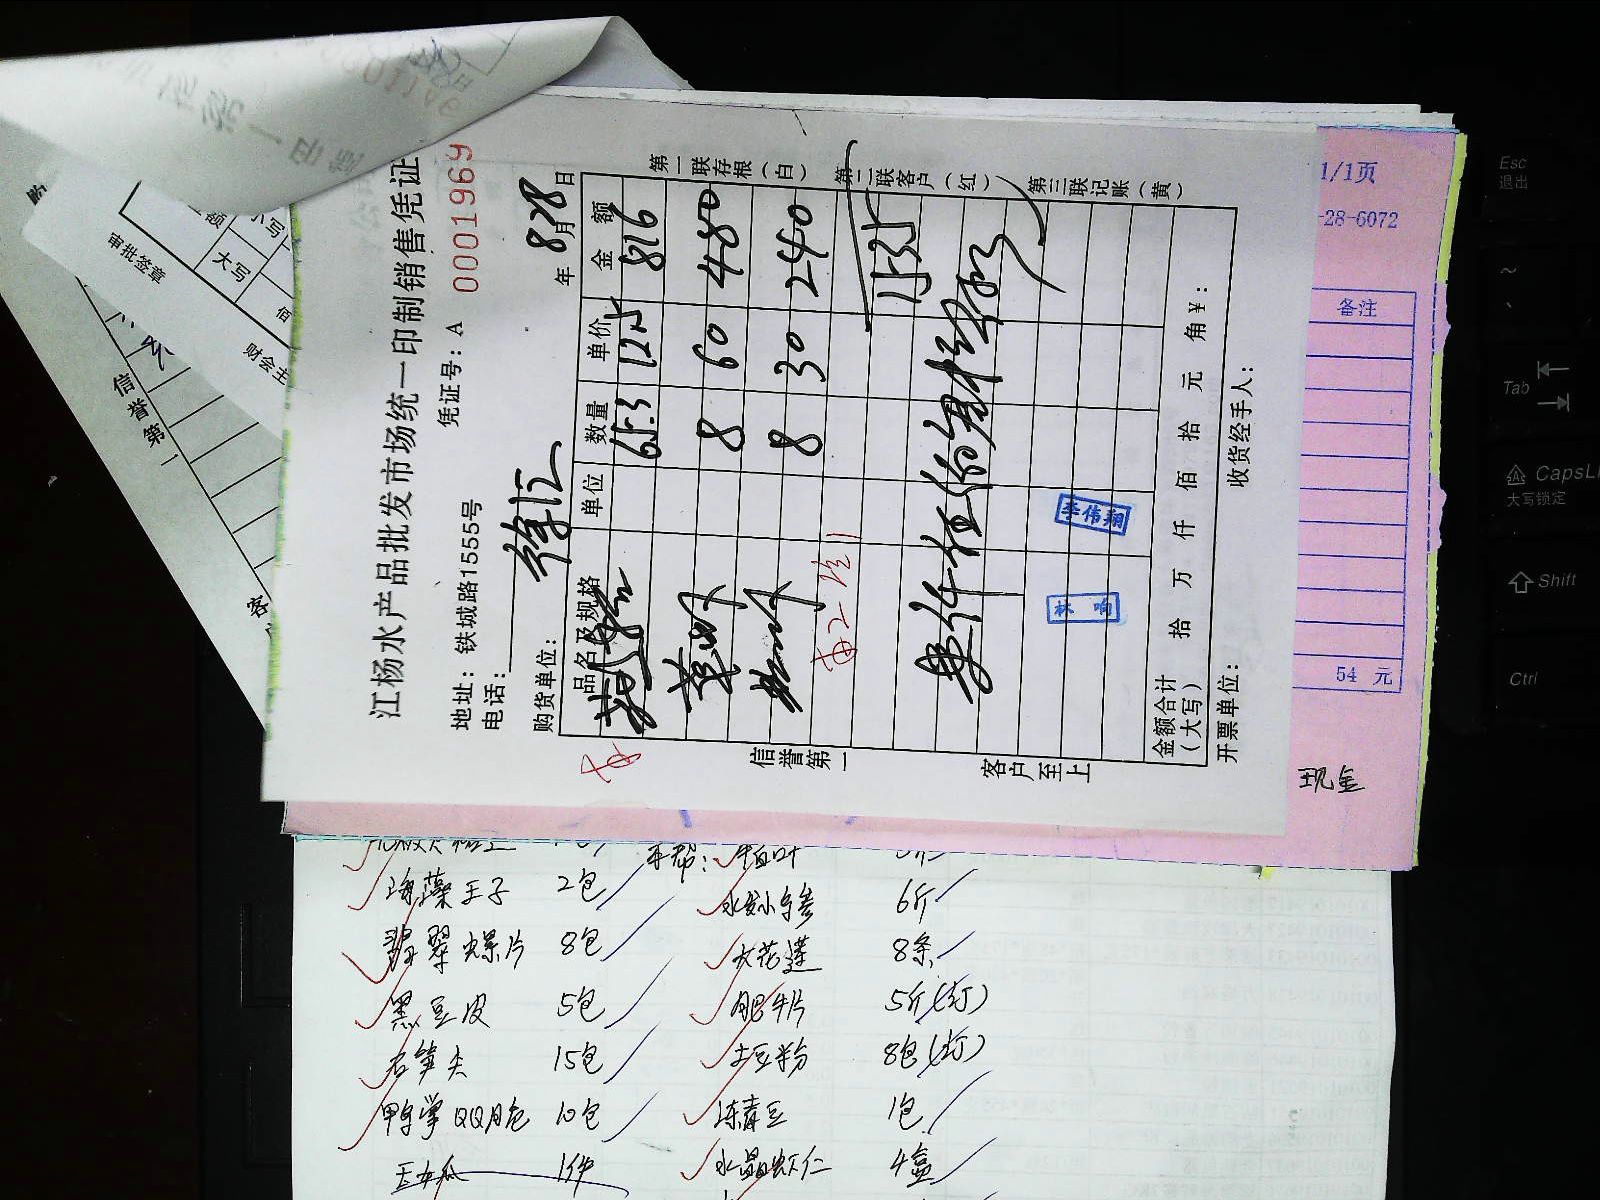 江杨水产品批发市场统一印制销售凭证
地址：铁城路15555号 凭证号：A 00001969
电话：
购货单位： 徐汇 年 8月28日
品名及规格 单位 数量 单价 金额
65.3 12.5 816
8 60 480
8 30 240
1535
金额合计（大写） 拾 万 仟 佰 拾 元 角 ¥：
开票单位： 收货经手人：
第一联存根（白） 第二联客户（红） 第三联记账（黄）
信誉第一 客户至上
李伟翔
林响
额 小写
大写
佰
审批签章
财会主
信誉第一
客
1/1页
-28-6072
备注
54 元
现金
海藻王子 2包
翡翠螺片 8包
黑豆皮 5包
名笋尖 15包
鸭掌 QQ 10包
1件
牛百叶
水发小乌参 6斤
大花莲 8条
肥牛片 5斤(订)
土豆粉 8包(订)
冻青豆 1包
水晶虾仁 4盒
Esc
退出
~
Tab
CapsL
大写锁定
Shift
Ctrl